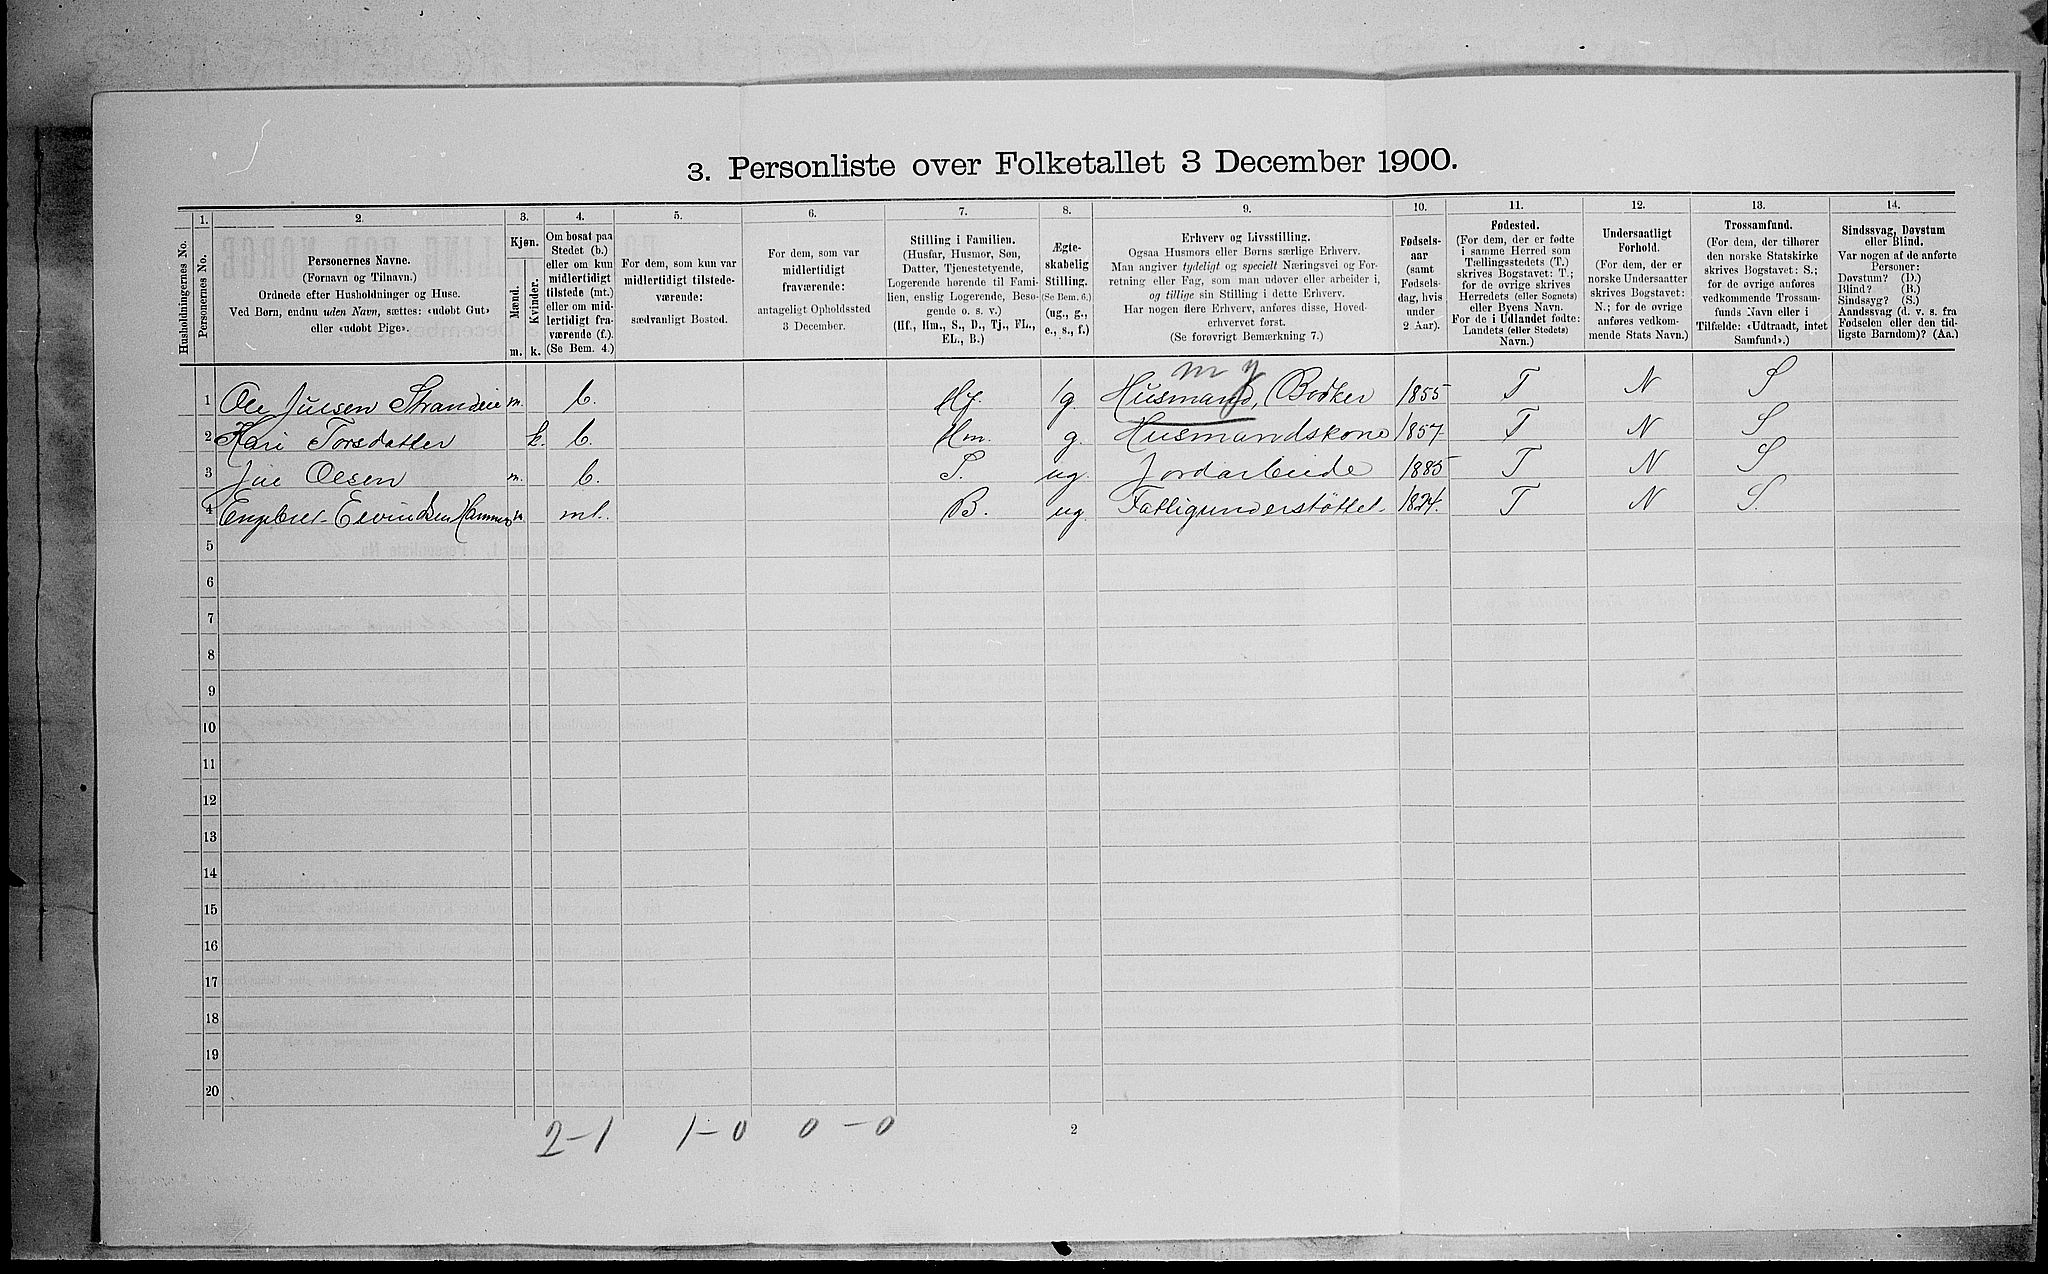 3. Personliste over Folketallet 3 December 1900.
1. 2. 3. 4. 5. 6. 7. 8. 9. 10. 11. 12. 13. 14.
Husholdningernes No.
Personernes No.
Personernes Navne.
(Fornavn og Tilnavn.)
Ordnede efter Husholdninger og Huse.
Ved Børn, endnu uden Navn, sættes: «udøbt Gut»
eller «udøbt Pige».
Kjøn.
Mænd.
Kvinder.
m. k.
Om bosat paa
Stedet (b.)
eller om kun
midlertidigt
tilstede (mt.)
eller om mid-
lertidigt fra-
værende (f.).
(Se Bem. 4.)
For dem, som kun var
midlertidigt tilstede-
værende:
sædvanligt Bosted.
For dem, som var
midlertidigt
fraværende:
antageligt Opholdssted
3 December.
Stilling i Familien.
(Husfar, Husmor, Søn,
Datter, Tjenestetyende,
Logerende hørende til Fami-
lien, enslig Logerende, Besø-
gende o. s. v.)
(Hf., Hm., S., D., Tj., FL.,
EL., B.)
Ægte-
skabelig
Stilling.
(Se Bem. 6.)
(ug., g.,
e., s., f.)
Erhverv og Livsstilling.
Ogsaa Husmors eller Børns særlige Erhverv.
Man angiver tydeligt og specielt Næringsvei og For-
retning eller Fag, som man udøver eller arbeider i,
og tillige sin Stilling i dette Erhverv.
Har nogen flere Erhverv, anføres disse, Hoved-
erhvervet først.
(Se forøvrigt Bemærkning 7.)
Fødsels-
aar
(samt
Fødsels-
dag, hvis
under
2 Aar).
Fødested.
(For dem, der er fødte
i samme Herred som
Tællingsstedets (T.)
skrives Bogstavet: T.;
for de øvrige skrives
Herredets (eller Sognets)
eller Byens Navn.
For de i Udlandet fødte:
Landets (eller Stedets)
Navn.)
Undersaatligt
Forhold.
(For dem, der er
norske Undersaatter
skrives Bogstavet:
N.; for de øvrige
anføres vedkom-
mende Stats Navn.)
Trossamfund.
(For dem, der tilhører
den norske Statskirke
skrives Bogstavet: S.;
for de øvrige anføres
vedkommende Trossam-
funds Navn eller i
Tilfælde: «Udtraadt, intet
Samfund».)
Sindssvag, Døvstum
eller Blind.
Var nogen af de anførte
Personer:
Døvstum? (D.)
Blind? (B.)
Sindssyg? (S.)
Aandssvag (d. v. s. fra
Fødselen eller den tid-
ligste Barndom)? (Aa.)
m
1 Ole Julsen Strandeie m. b. Hf. g Husmand, Bødker 1855 T N S
2 Kari Torsdatter k. b. Hm. g. Husmandskone 1857 T N S
3 Jul Olsen m. b. S. ug. Jordarbeide 1885 T N S
4 Engebret Eivindsen Hammer m mt. B. ug. Fattigunderstøttet. 1824. T N S.
5
6
7
8
9
10
11
12
13
14
15
16
17
18
19
20
2-1 1-0 0-0
2